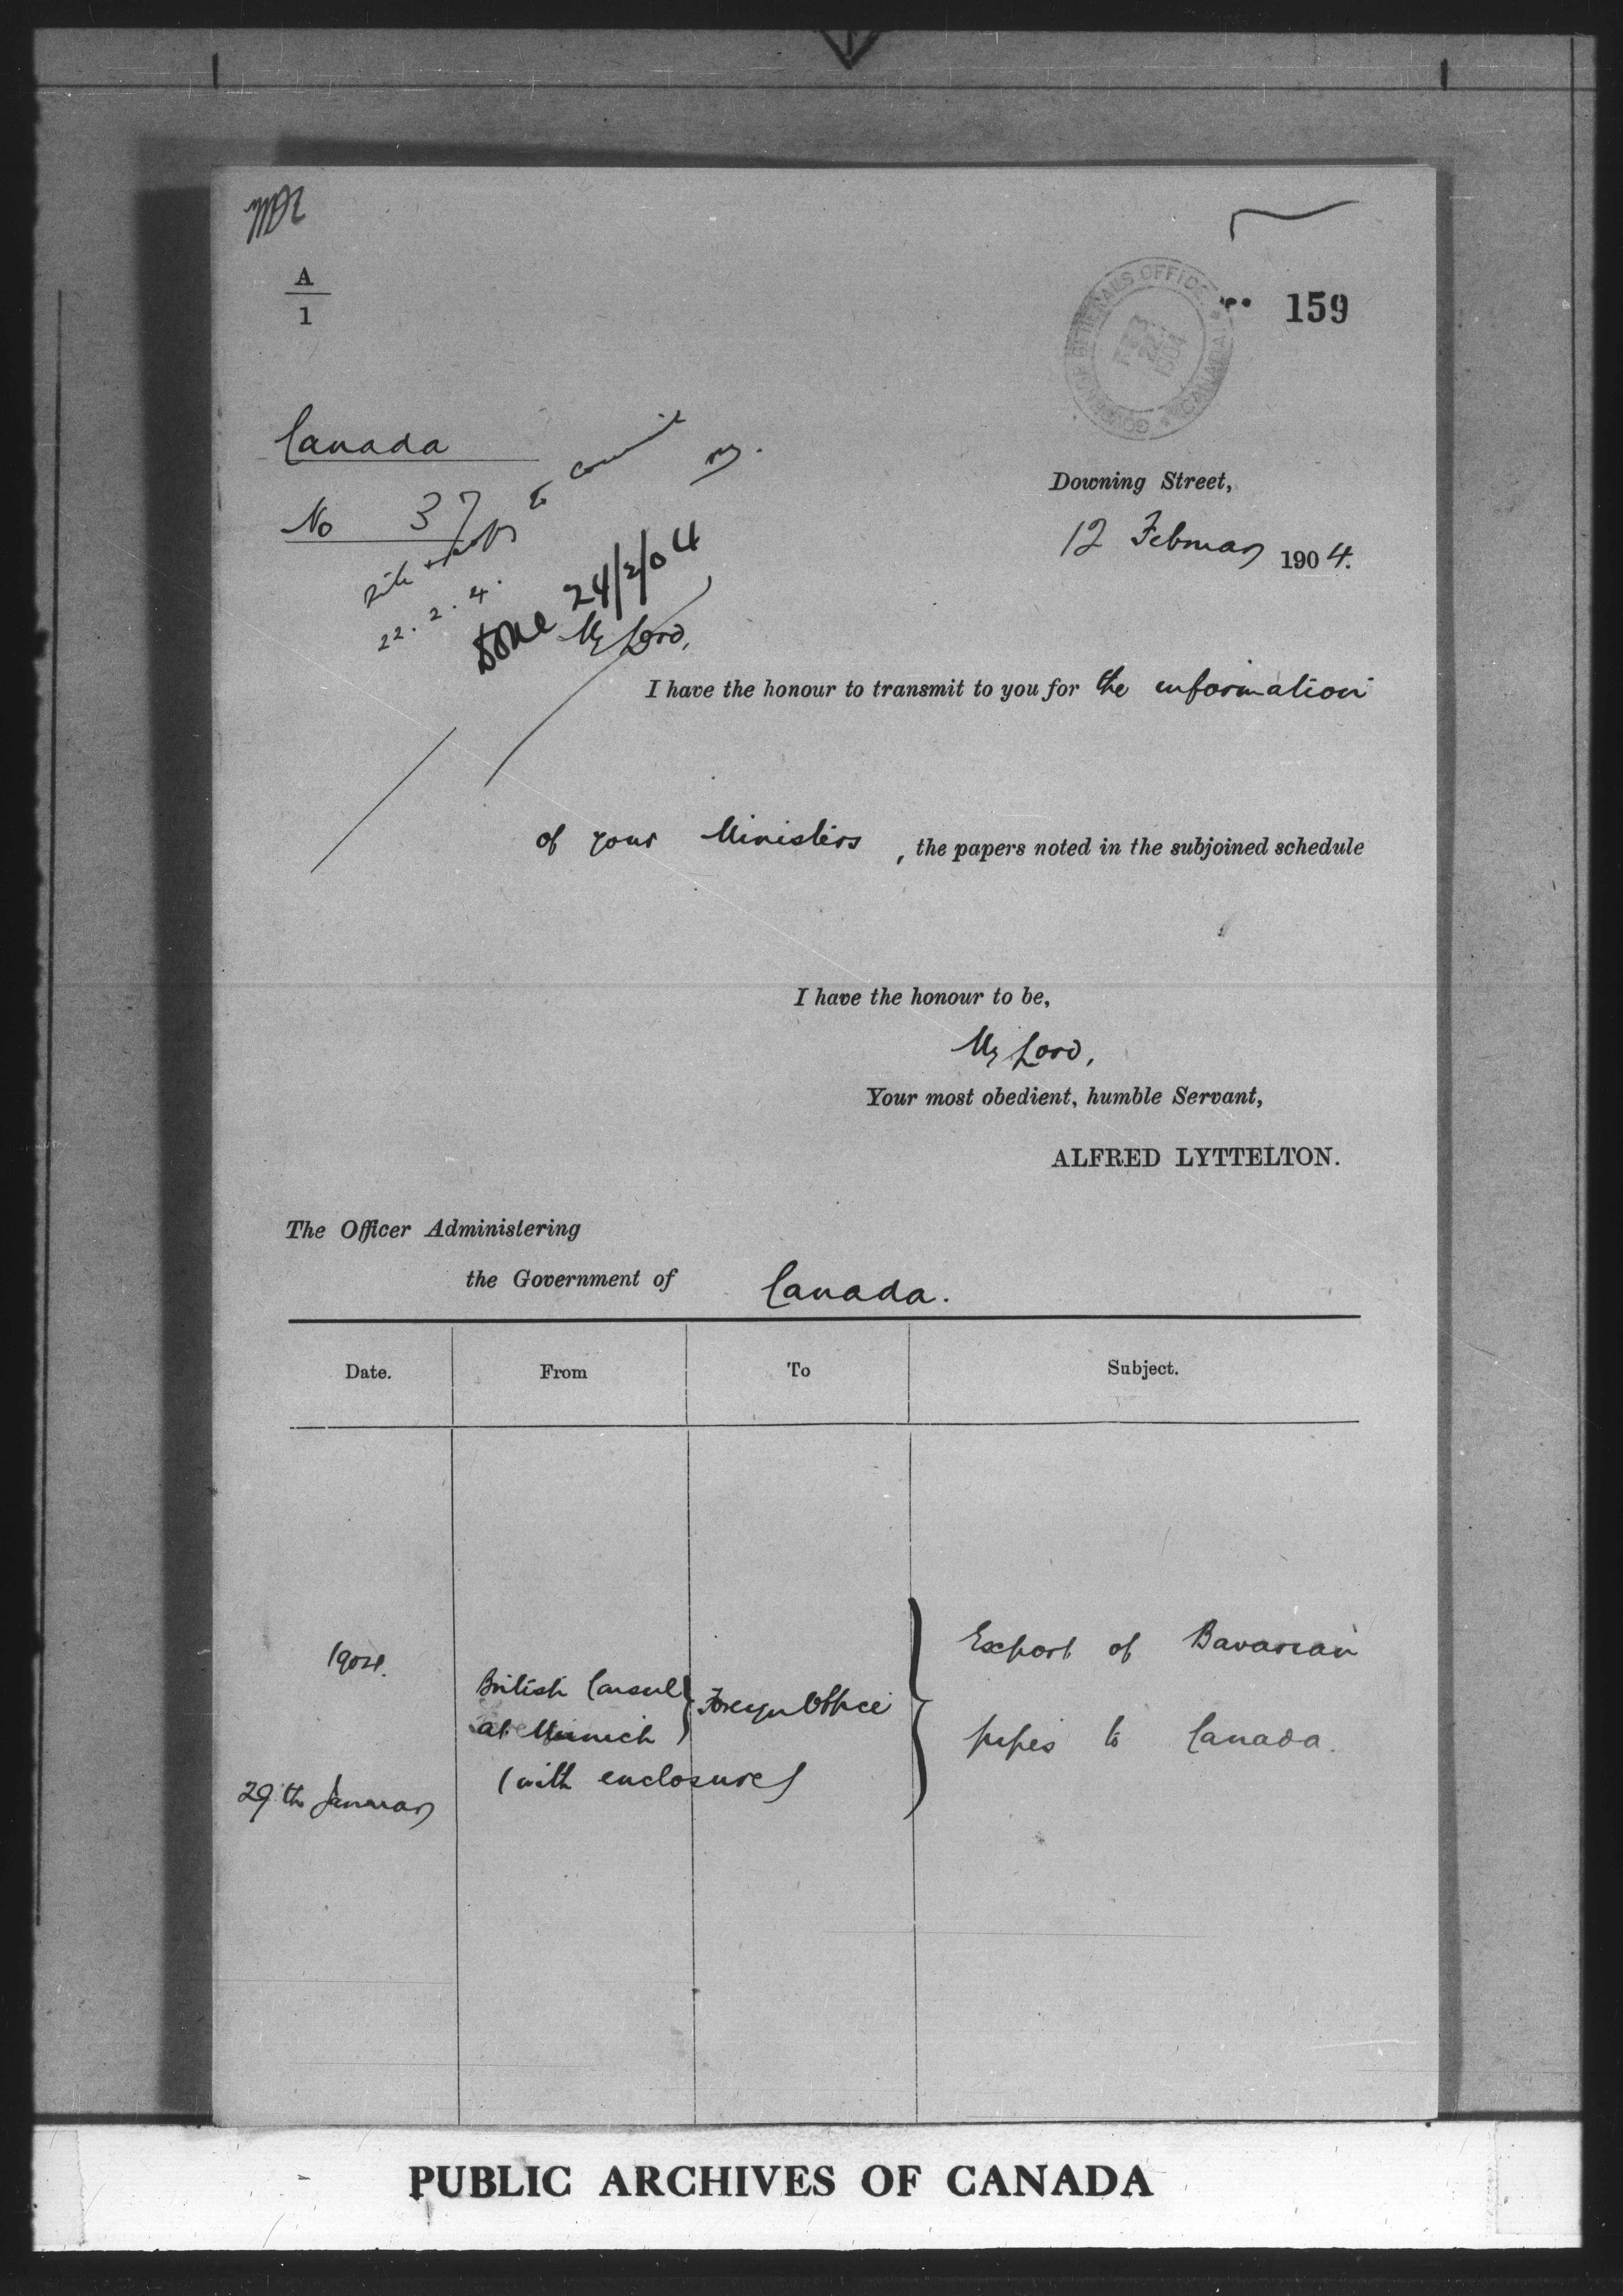 A
1
GOVERNOR GENERALS OFFICE
CANADA
FEB
22
1904
159
Canada
No 37
copy to council
22.2.4.
Done 24/2/04
Downing Street,
12 February 1904.
My Lord,
I have the honour to transmit to you for the information
of your Ministers, the papers noted in the subjoined schedule
I have the honour to be,
My Lord,
Your most obedient, humble Servant,
ALFRED LYTTELTON.
The Officer Administering
the Government of Canada.
Date. From To Subject.
1904.
29th January
British Consul
at Munich
(with enclosure)
Foreign Office
Export of Bavarian
pipes to Canada.
PUBLIC ARCHIVES OF CANADA